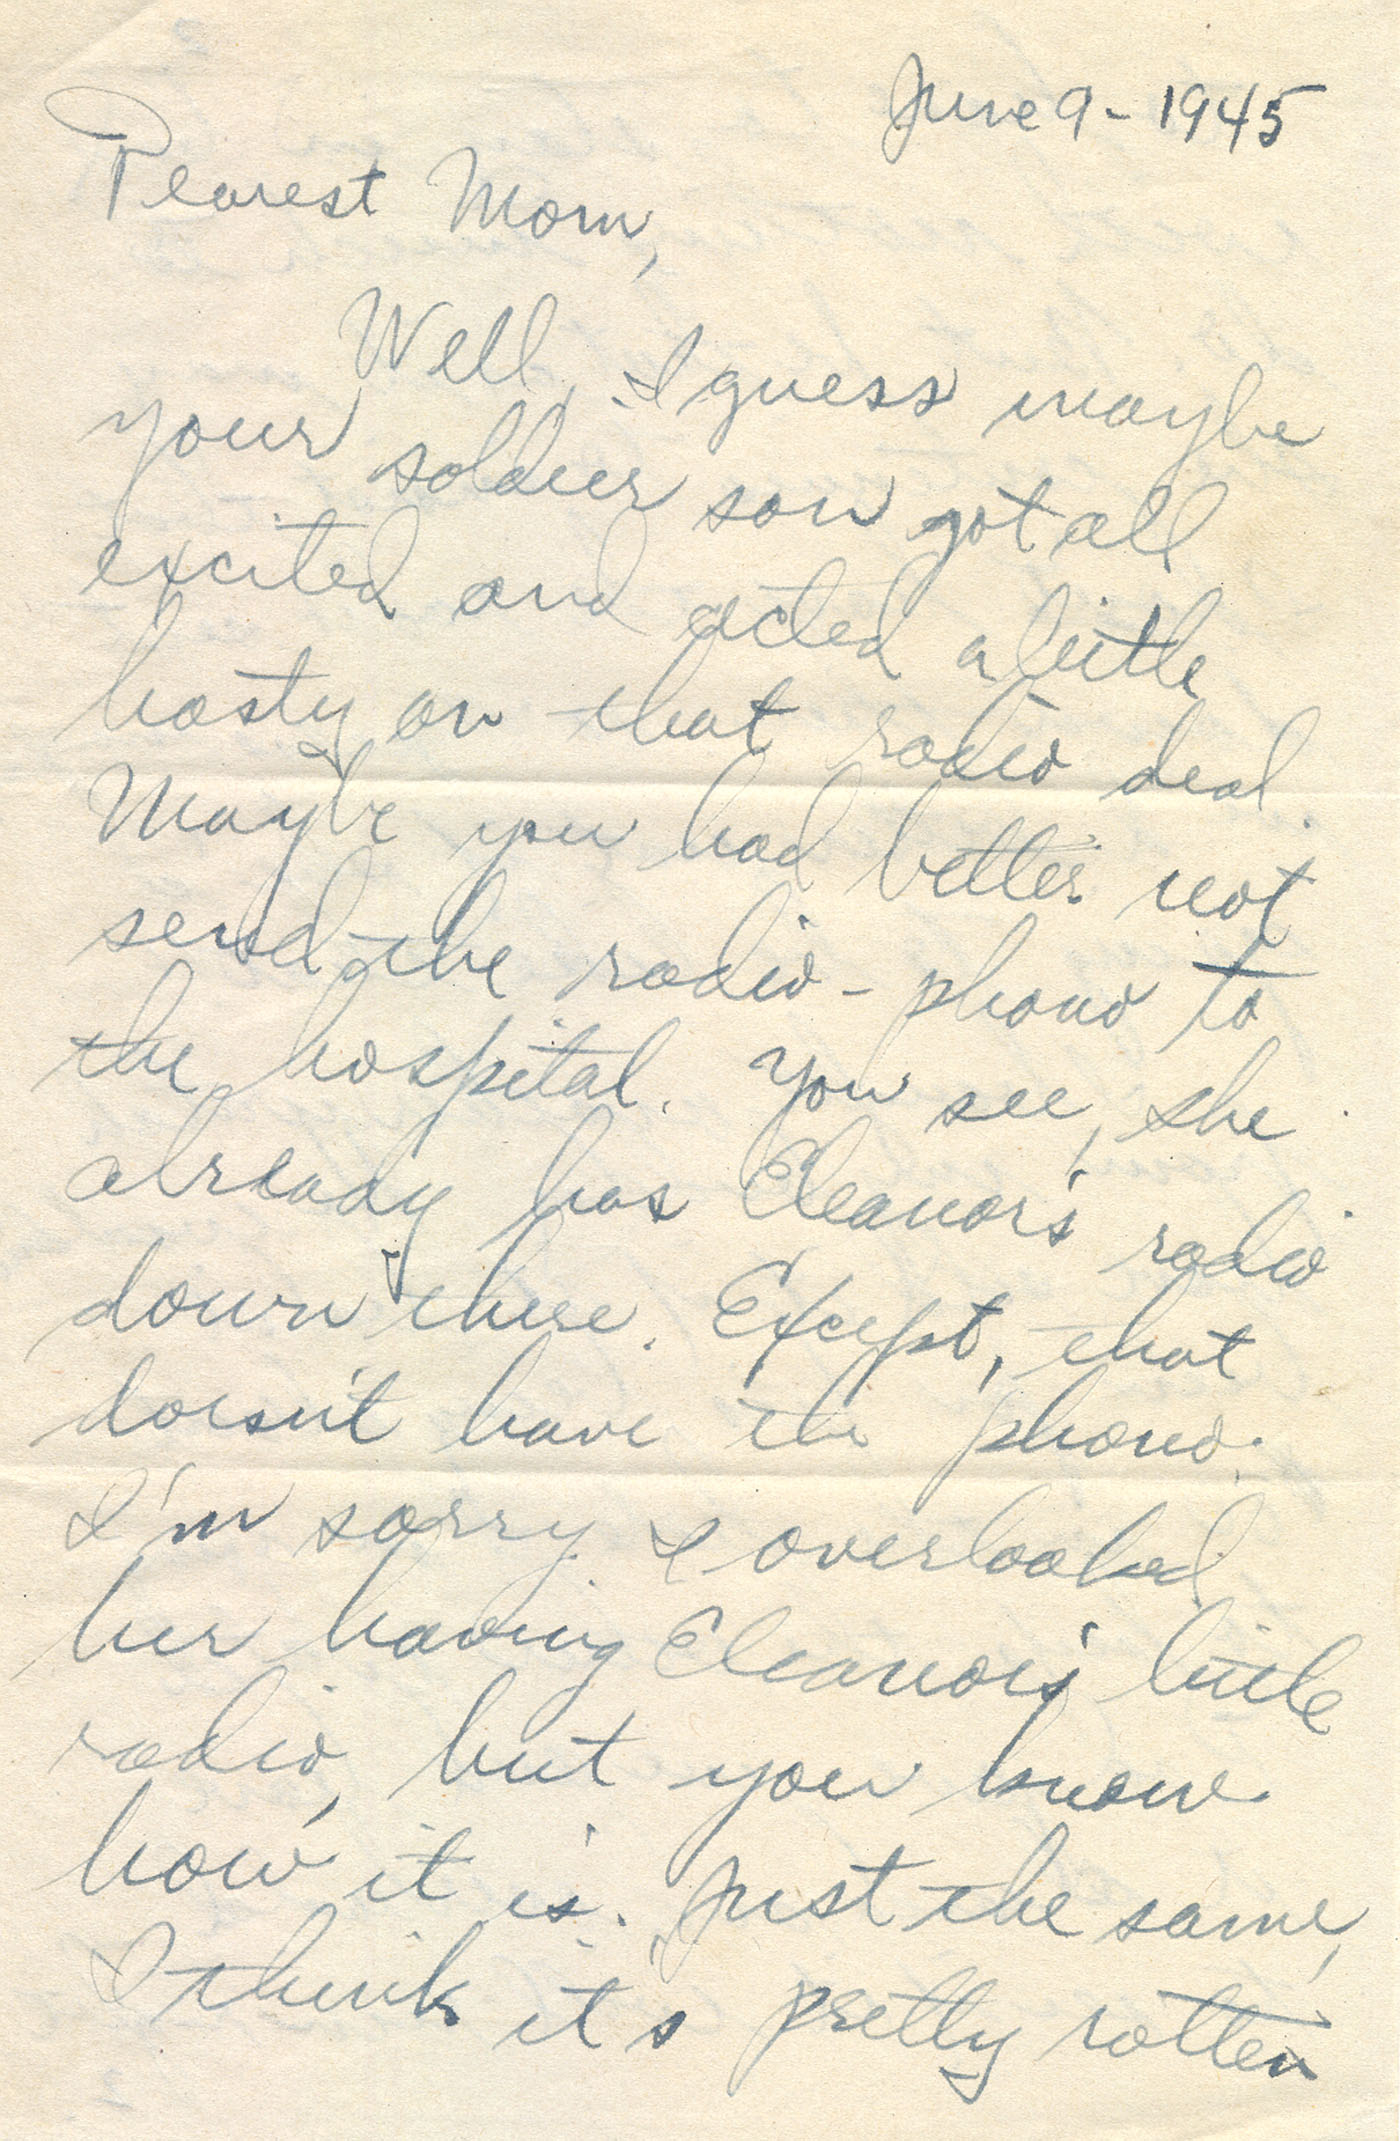 June 9 - 1945
Dearest Mom,
Well, I guess maybe
your soldier son got all
excited and acted a little
hasty on that radio deal.
Maybe you had better not
send the radio-phono to
the hospital. You see, she
already has Eleanor's radio
down there. Except, that
doesn't have the phono.
I'm sorry I overlooked
her having Eleanor's little
radio, but you know
how it is. Just the same,
I think it's pretty rotten